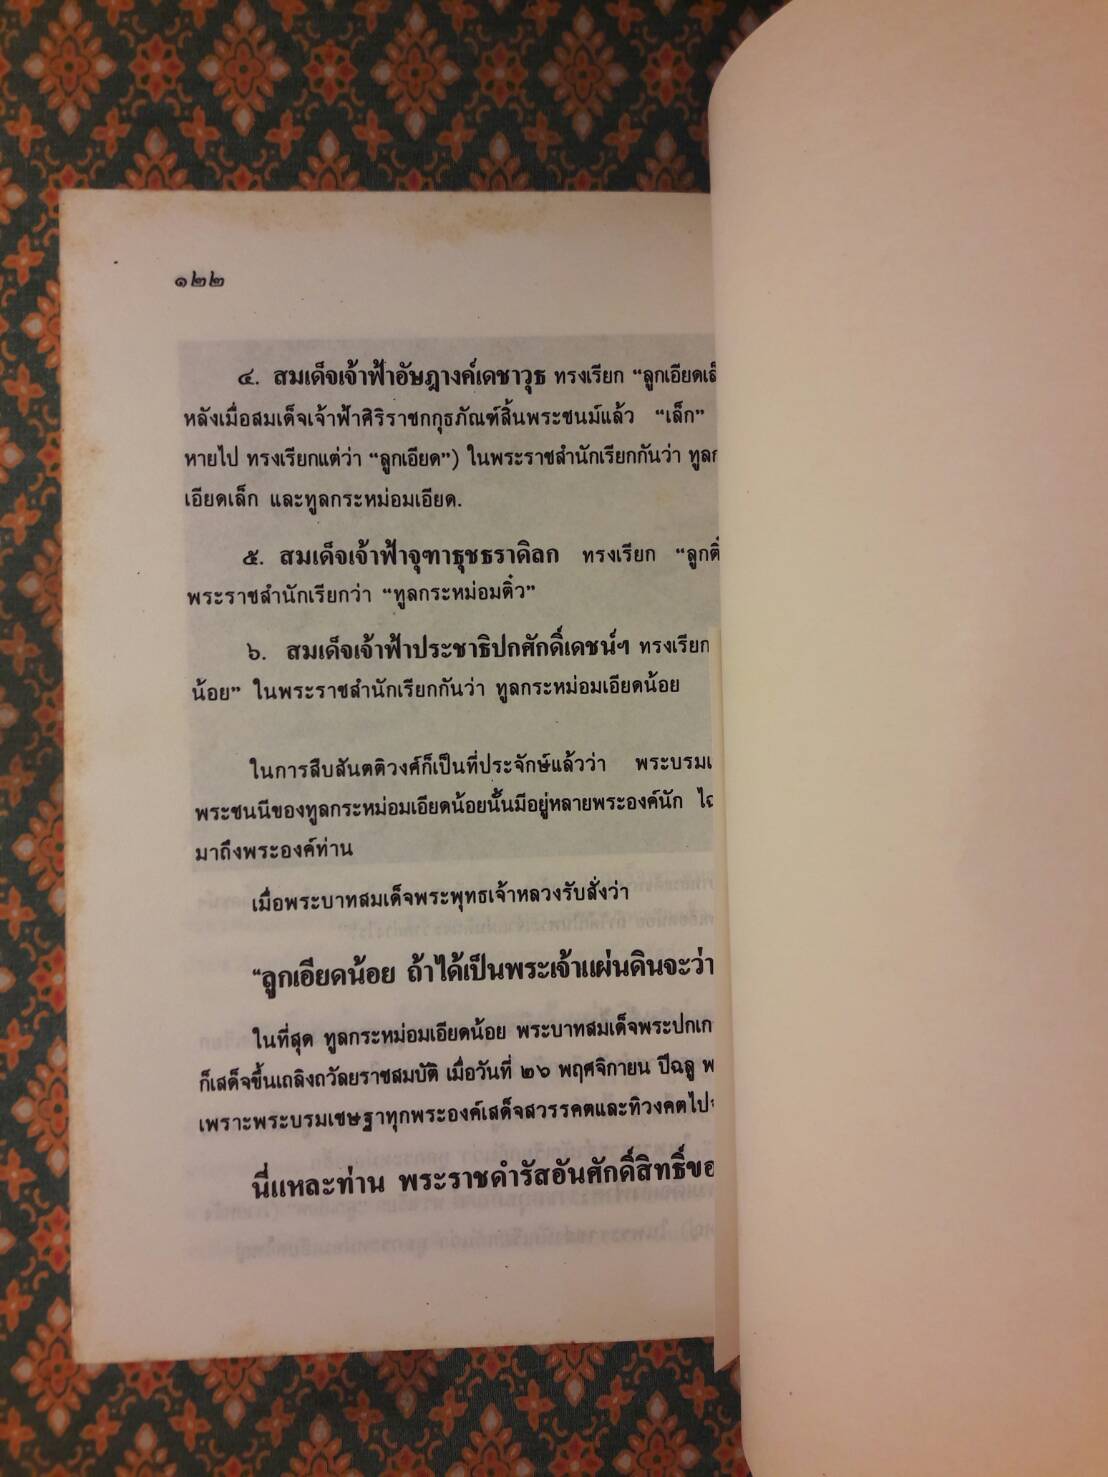 ๑๒๒
๔. สมเด็จเจ้าฟ้าอัษฎางค์เดชาวุธ ทรงเรียก “ลูกเอียดเล็
หลังเมื่อสมเด็จเจ้าฟ้าศิริราชกกุธภัณฑ์สิ้นพระชนม์แล้ว “เล็ก”
หายไป ทรงเรียกแต่ว่า “ลูกเอียด”) ในพระราชสำนักเรียกกันว่า ทูลก
เอียดเล็ก และทูลกระหม่อมเอียด.
๕. สมเด็จเจ้าฟ้าจุฑาธุชธราดิลก ทรงเรียก “ลูกติ๋
พระราชสำนักเรียกว่า “ทูลกระหม่อมติ๋ว”
๖. สมเด็จเจ้าฟ้าประชาธิปกศักดิ์เดชน์ฯ ทรงเรียก
น้อย” ในพระราชสำนักเรียกกันว่า ทูลกระหม่อมเอียดน้อย
ในการสืบสันตติวงศ์ก็เป็นที่ประจักษ์แล้วว่า พระบรมเ
พระชนนีของทูลกระหม่อมเอียดน้อยนั้นมีอยู่หลายพระองค์นัก ไฉ
มาถึงพระองค์ท่าน
เมื่อพระบาทสมเด็จพระพุทธเจ้าหลวงรับสั่งว่า
“ลูกเอียดน้อย ถ้าได้เป็นพระเจ้าแผ่นดินจะว่า
ในที่สุด ทูลกระหม่อมเอียดน้อย พระบาทสมเด็จพระปกเก
ก็เสด็จขึ้นเถลิงถวัลยราชสมบัติ เมื่อวันที่ ๒๖ พฤศจิกายน ปีฉลู พ
เพราะพระบรมเชษฐาทุกพระองค์เสด็จสวรรคตและทิวงคตไป
นี่แหละท่าน พระราชดำรัสอันศักดิ์สิทธิ์ขอ